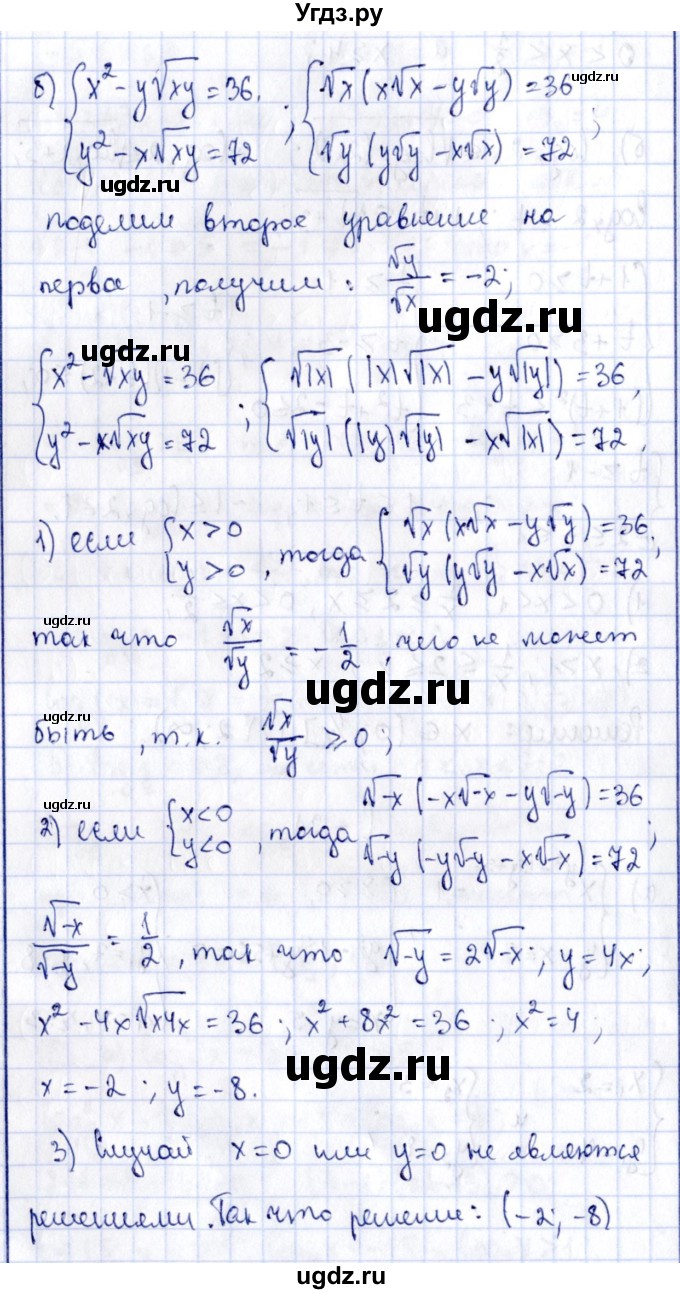 Угдз.ру
б) { x² - y√xy = 36. ; { √x (x√x - y√y) = 36 ;
{ y² - x√xy = 72 { √y (y√y - x√x) = 72
ugdz.ru
поделим второе уравнение на
первое, получим: √y/√x = -2;
ugdz.ru
ugdz.ru
{ x² - √xy = 36 ; { √|x| (|x|√|x| - y√|y|) = 36,
{ y² - x√xy = 72 { √|y| (|y|√|y| - x√|x|) = 72.
1) если { x > 0 , тогда { √x (x√x - y√y) = 36. ;
{ y > 0 { √y (y√y - x√x) = 72
ugdz.ru
так что √x/√y = -1/2, чего не может
ugdz.ru
ugdz.ru
быть, т.к. √x/√y ⩾ 0;
ugdz.ru
2) если { x<0 , тогда √-x (-x√-x - y√-y) = 36 ;
{ y<0 √-y (-y√-y - x√-x) = 72
√-x/√-y = 1/2, так что √-y = 2√-x; y = 4x;
x² - 4x√x4x = 36; x² + 8x² = 36; x² = 4;
ugdz.ru
x = -2; y = -8.
3) Случай x=0 или y=0 не являются
решениями. Так что решение: (-2; -8)
ugdz.ru